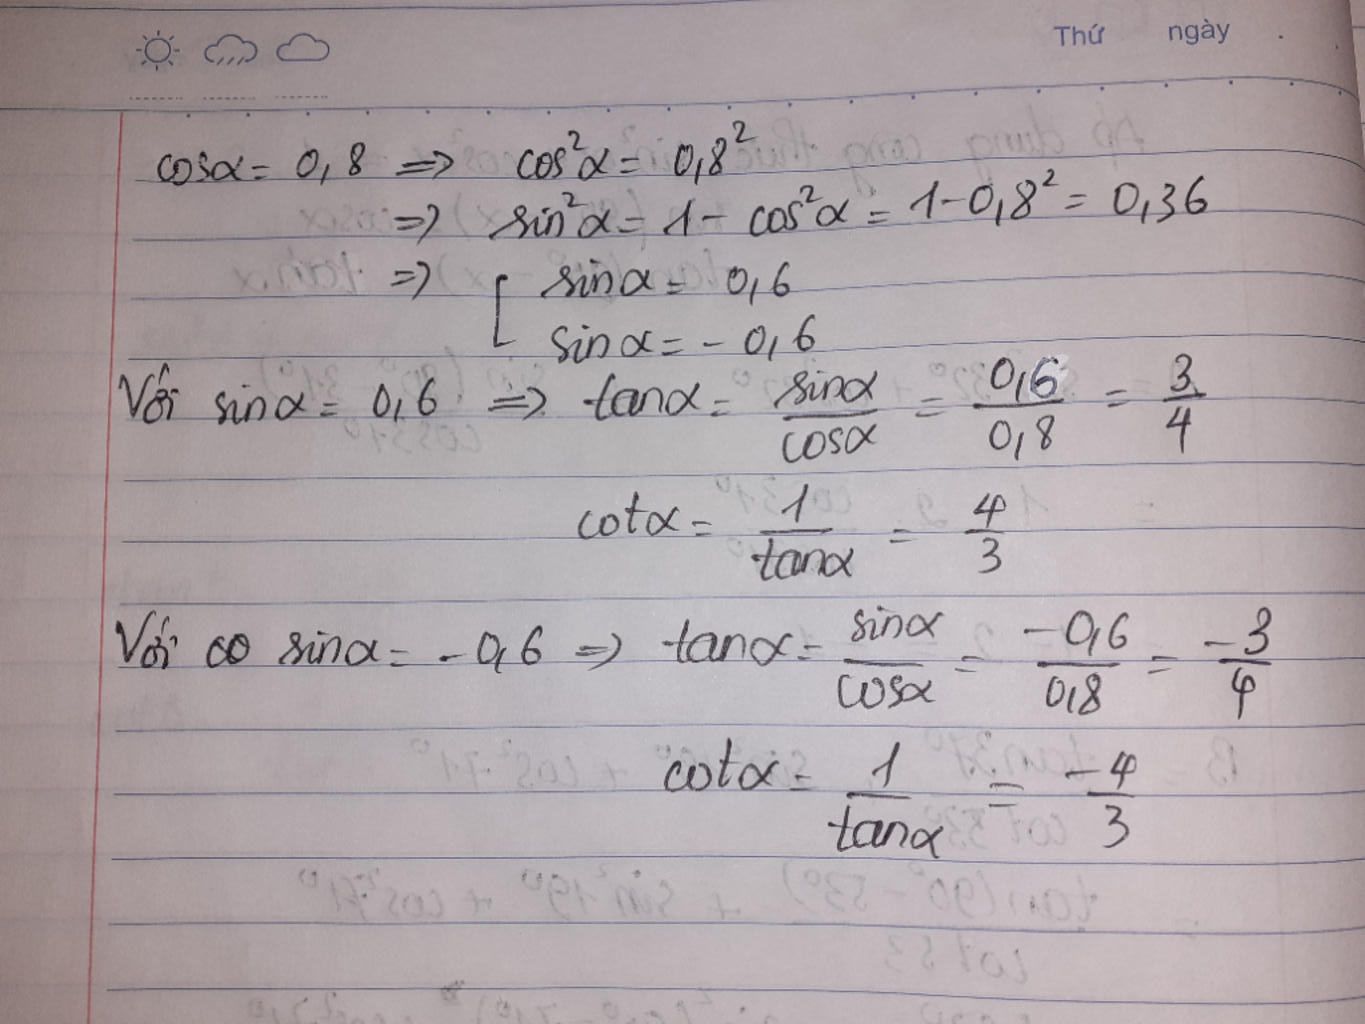 Thứ ngày
cosα = 0,8 => cos²α = 0,8²
=> sin²α = 1 - cos²α = 1-0,8² = 0,36
=> [ sinα = 0,6
sinα = - 0,6
Với sinα = 0,6 => tanα = sinα/cosα = 0,6/0,8 = 3/4
cotα = 1/tanα = 4/3
Với co sinα = - 0,6 => tanα = sinα/cosα = -0,6/0,8 = -3/4
cotα = 1/tanα = -4/3